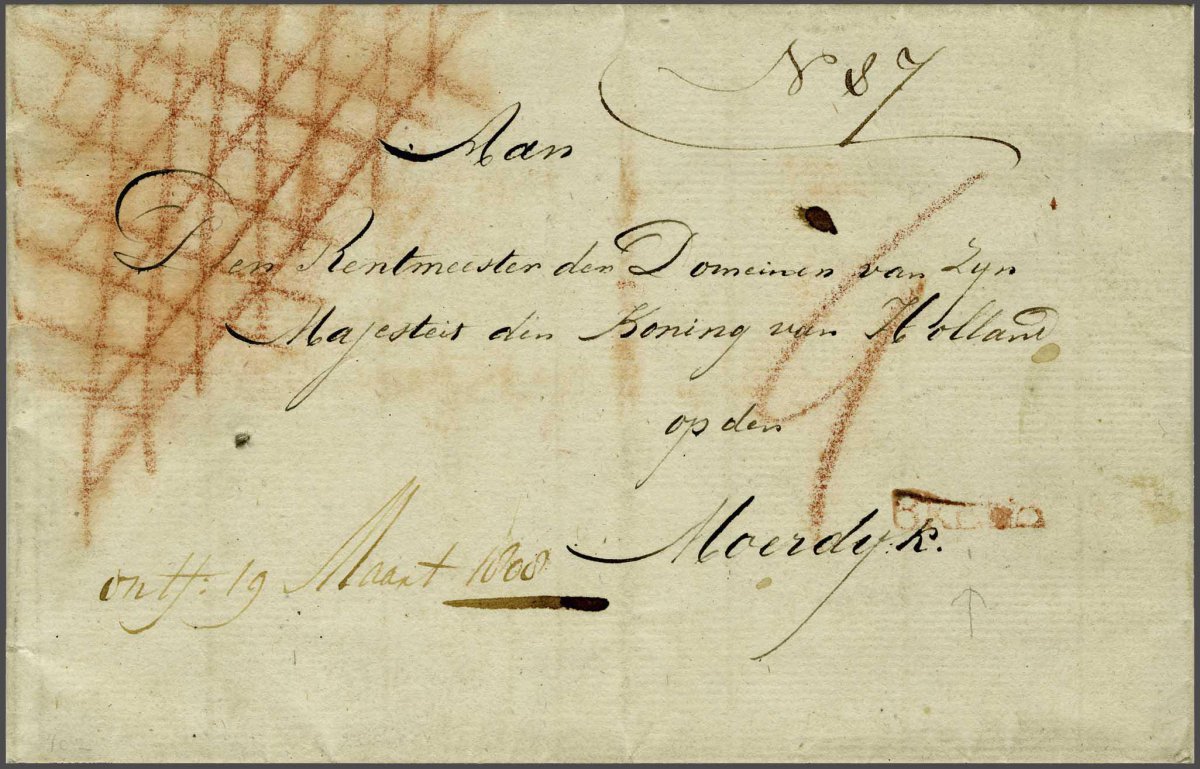 N 87
Aan
Den Rentmeester der Domeinen van Zyn
Majesteit den Koning van Holland
op den
Moerdyk.
ontf: 19 Maart 1808